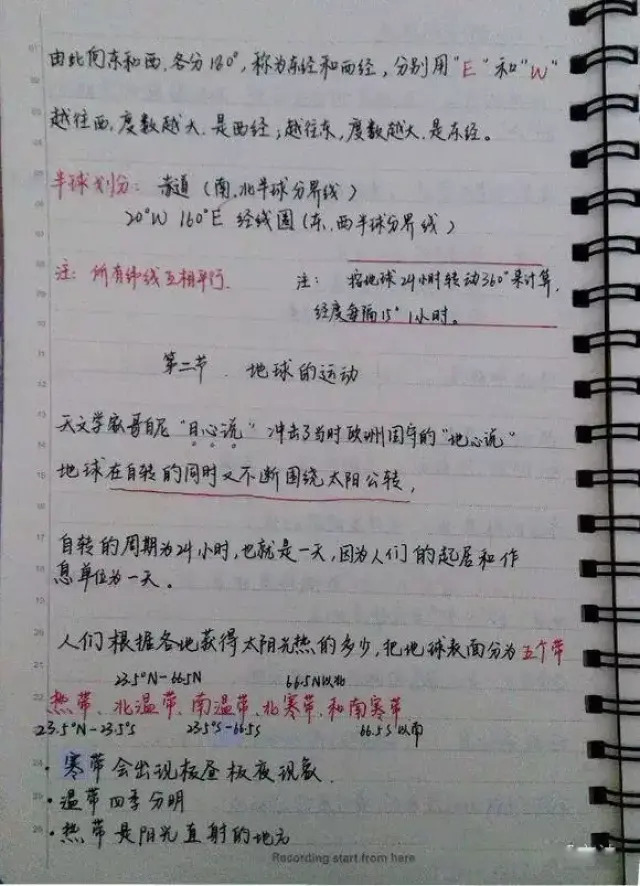 由此向东和西,各分180°,称为东经和西经,分别用"E"和"W"
越往西,度数越大,是西经;越往东,度数越大,是东经。
半球划分: 赤道(南,北半球分界线)
20°W 160°E 经线圈(东、西半球分界线)
注: 所有纬线互相平行.
注: 按地球24小时转动360°来计算,
经度每隔15° 1小时。
第二节. 地球的运动
天文学家哥白尼"日心说"冲击了当时欧洲固守的"地心说"
地球在自转的同时又不断围绕太阳公转,
自转的周期为24小时,也就是一天,因为人们的起居和作
息单位为一天。
人们根据各地获得太阳光热的多少,把地球表面分为五个带
23.5°N-66.5N 66.5N以北
热带、北温带、南温带、北寒带、和南寒带
23.5°N-23.5°S 23.5°S-66.5S 66.5S以南
·寒带会出现极昼极夜现象.
·温带四季分明
·热带是阳光直射的地方
Recording start from here